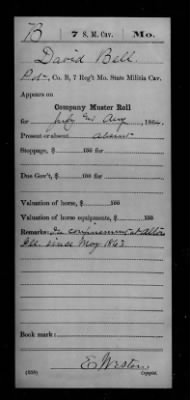 B 7 S. M. Cav. Mo.
David Bell
Pvt, Co. B, 7 Reg't Mo. State Militia Cav.
Appears on
Company Muster Roll
for July & Aug, 1864.
Present or absent absent
Stoppage, $ 100 for
Due Gov't, $ 100 for
Valuation of horse, $ 100
Valuation of horse equipments, $ 100
Remarks: In confinement at Alton
Ill. since May 1863
Book mark:
E Weston
(358) Copyist.